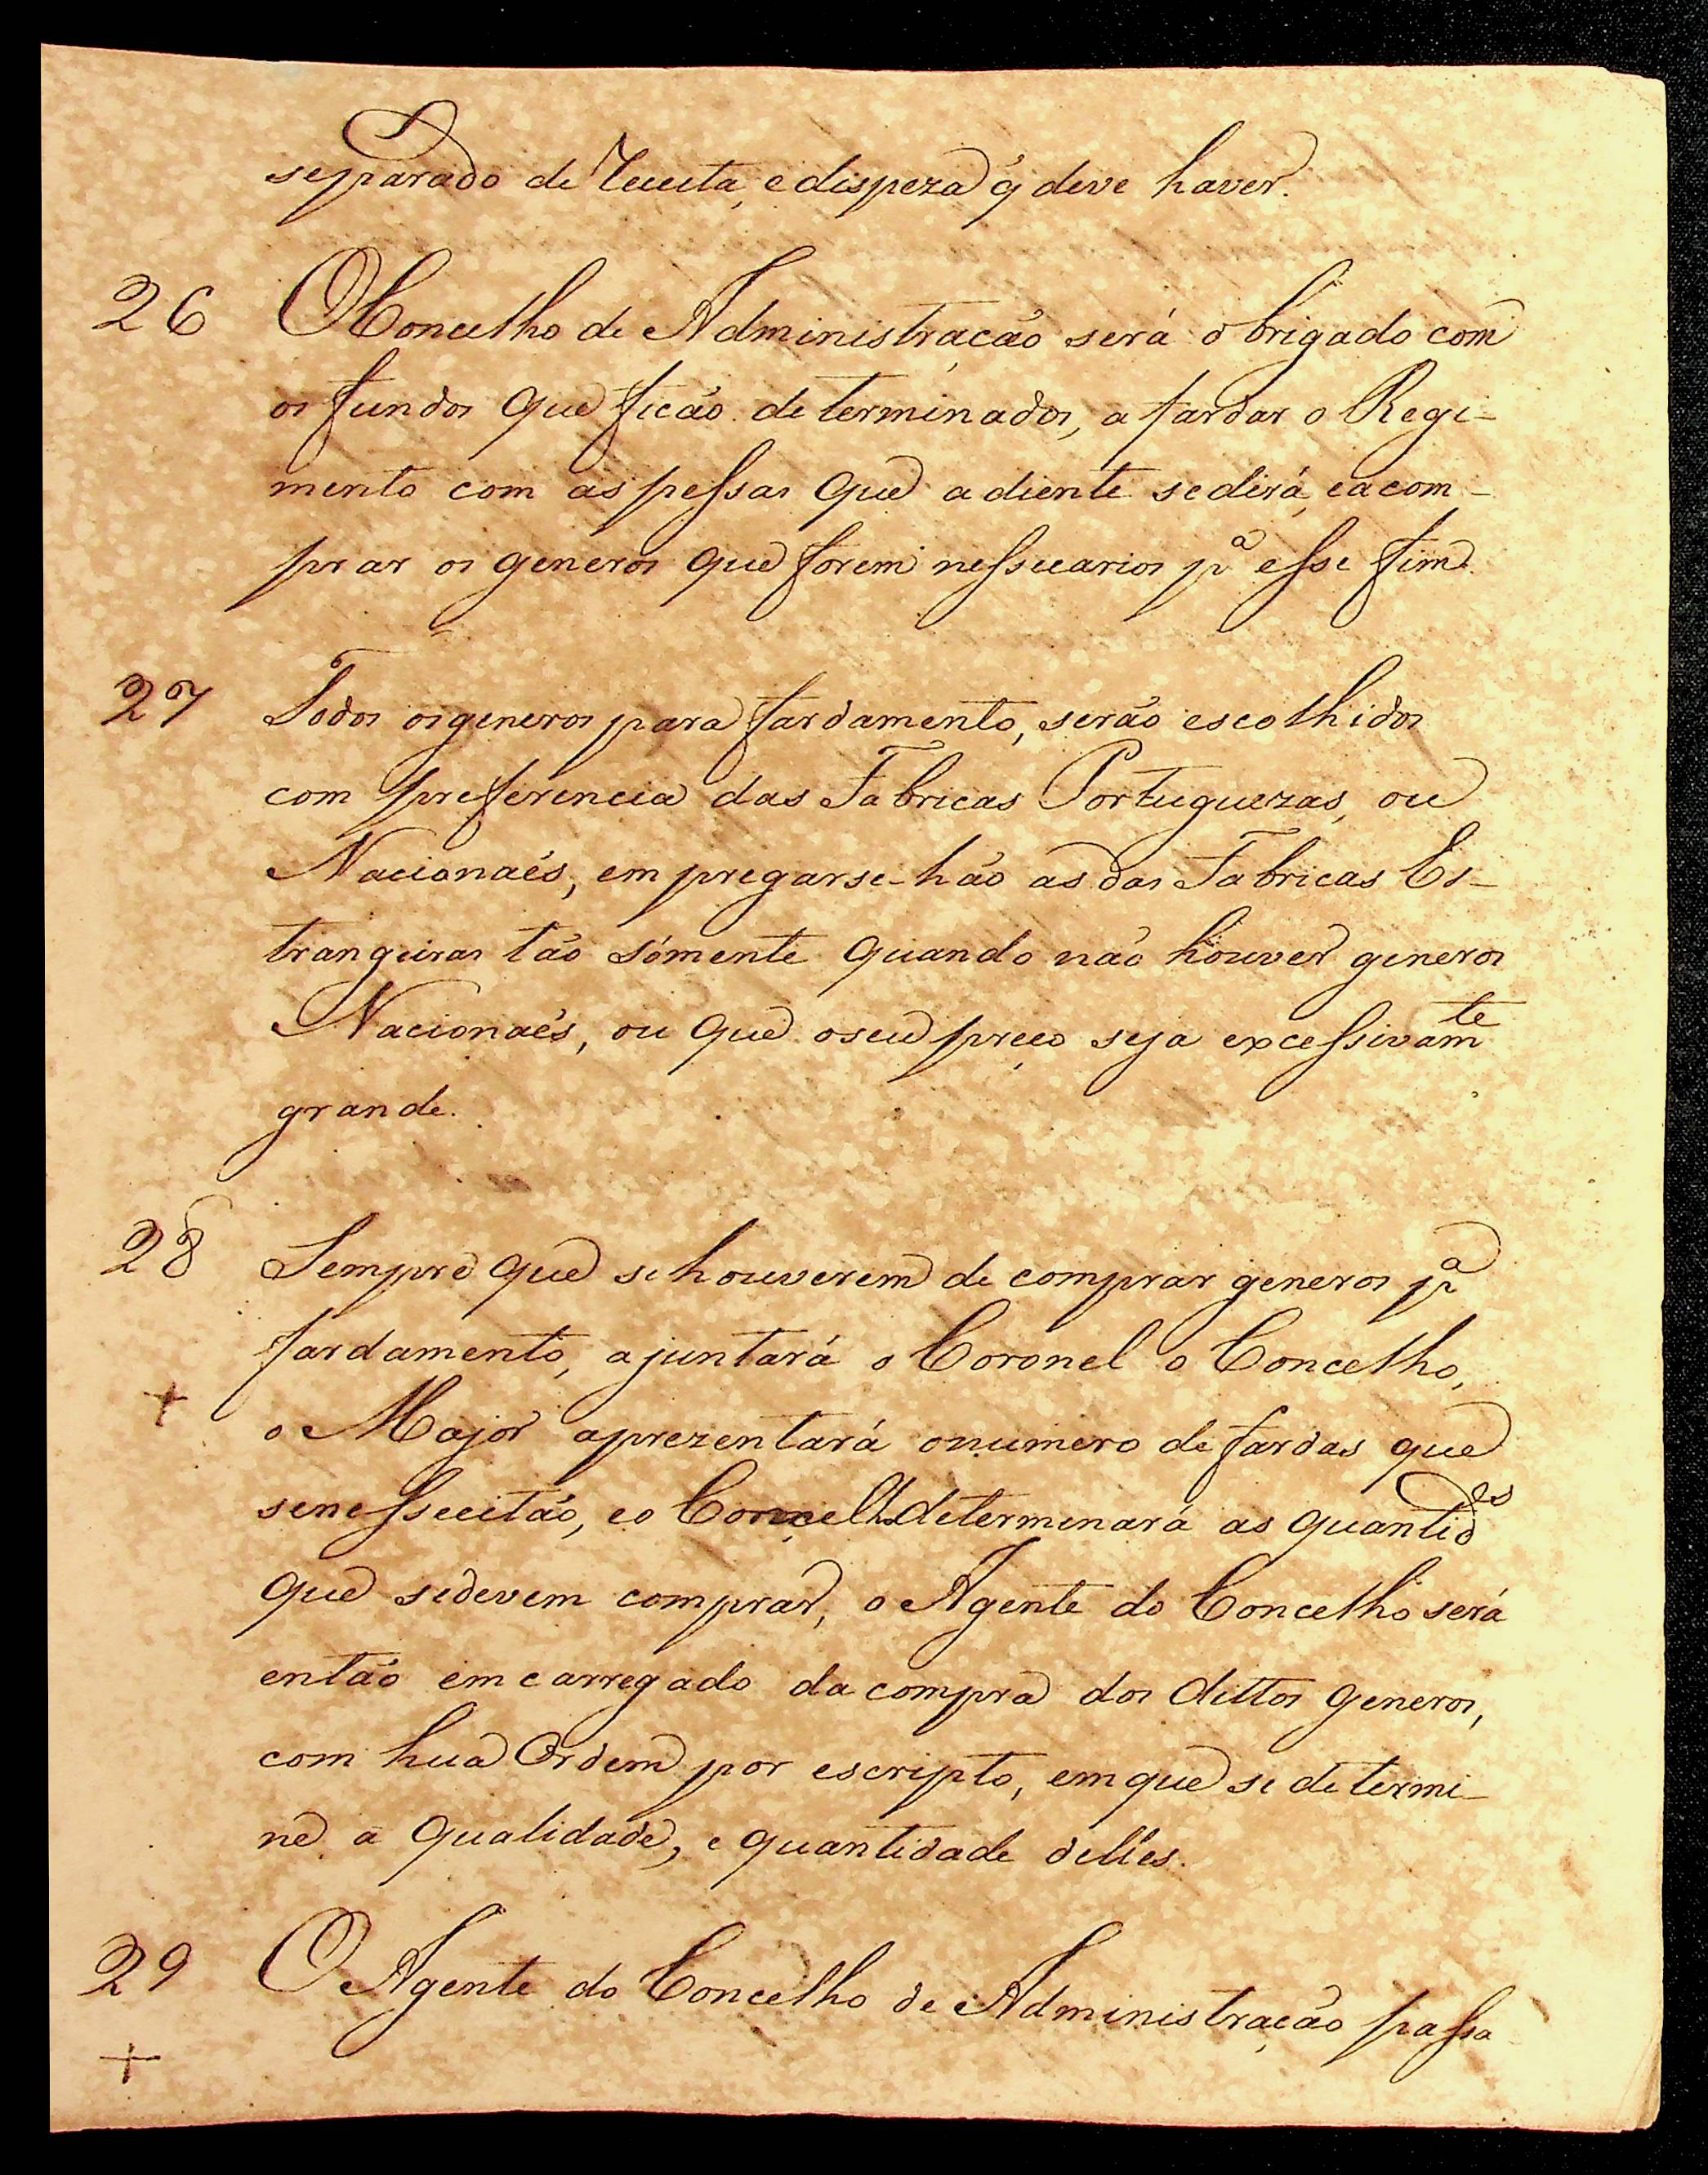 separado de Receita, e dispeza q̃ deve haver.
26 O Concelho de Administração será obrigado com
os fundos que ficão determinados, a fardar o Regi-
mento com as pessas que adiente se dirá, e a com-
prar os generos que forem nessecarios pª esse fim.
27 Todos os generos para fardamento, serão escolhidos
com preferencia das Fabricas Portuguezas, ou
Nacionaés, empregarse-hão as das Fabricas Es-
trangeiras tão sómente quando não houver generos
Nacionaés, ou que o seu preço seja excessivamte
grande.
28 Sempre que se houverem de comprar generos pª
fardamento, ajuntará o Coronel o Concelho,
+ o Major aprezentará o numero de fardas que
se nessecitão, e o Concelho determinará as quantides
que se devem comprar, o Agente do Concelho será
então emcarregado da compra dos dittos generos,
com hua Ordem por escripto, em que se determi-
ne a qualidade, e quantidade delles.
29 O Agente do Concelho de Administração passa-
+